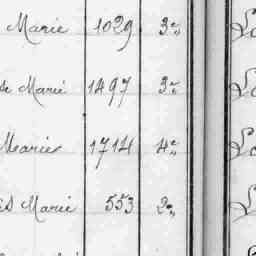 Marie 1029 3e
de Marie 1497 3e
Marie 1714 4e
Marie 553 2e